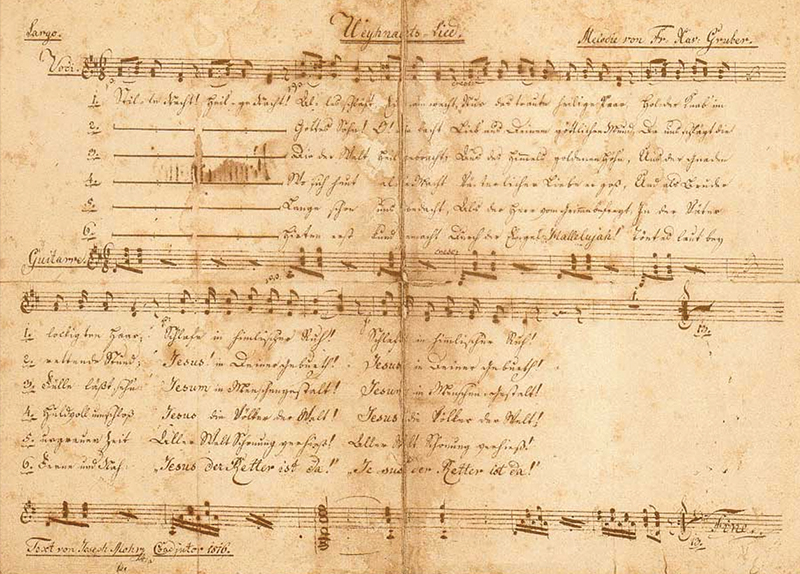 Largo. Weyhnachts-Lied. Melodie von Fr. Xav. Gruber.
Voci.
1. Stil-le Nacht! Heil-ge Nacht! Alles schläft. Eynsam wacht, Nur das traute heilige Paar. Holder Knab im
2. Gottes Sohn! O! wie lacht Lieb aus Deinem göttlichen Mund, Da uns schlägt die
3. Die der Welt Heil gebracht; Aus des Himmels goldenen Höhn, Uns der Gnaden
4. Wo sich heut alle Macht Väterlicher Liebe ergoß, Und als Bruder
5. Lange schon uns bedacht, Als der Herr vom Grimme befreyt, In der Väter
6. Hirten erst kund gemacht Durch der Engel Hallelujah! Tönt es laut bey
Guitarre.
1. lockigten Haar; Schlafe in himlischer Ruh! Schlafe in himlischer Ruh!
2. rettende Stund; Jesus! in Deiner Geburth! Jesus in Deiner Geburth!
3. Fülle läßt sehn Jesum in Menschengestalt! Jesum in Menschengestalt!
4. Huldvoll umschloß Jesus die Völker der Welt! Jesus die Völker der Welt!
5. urgrauer Zeit Aller Welt Schonung verhieß! Aller Welt Schonung verhieß!
6. Ferne und Nah: "Jesus der Retter ist da!" "Jesus der Retter ist da!"
Fine.
Text von Joseph Mohr Coadjutor 1816.